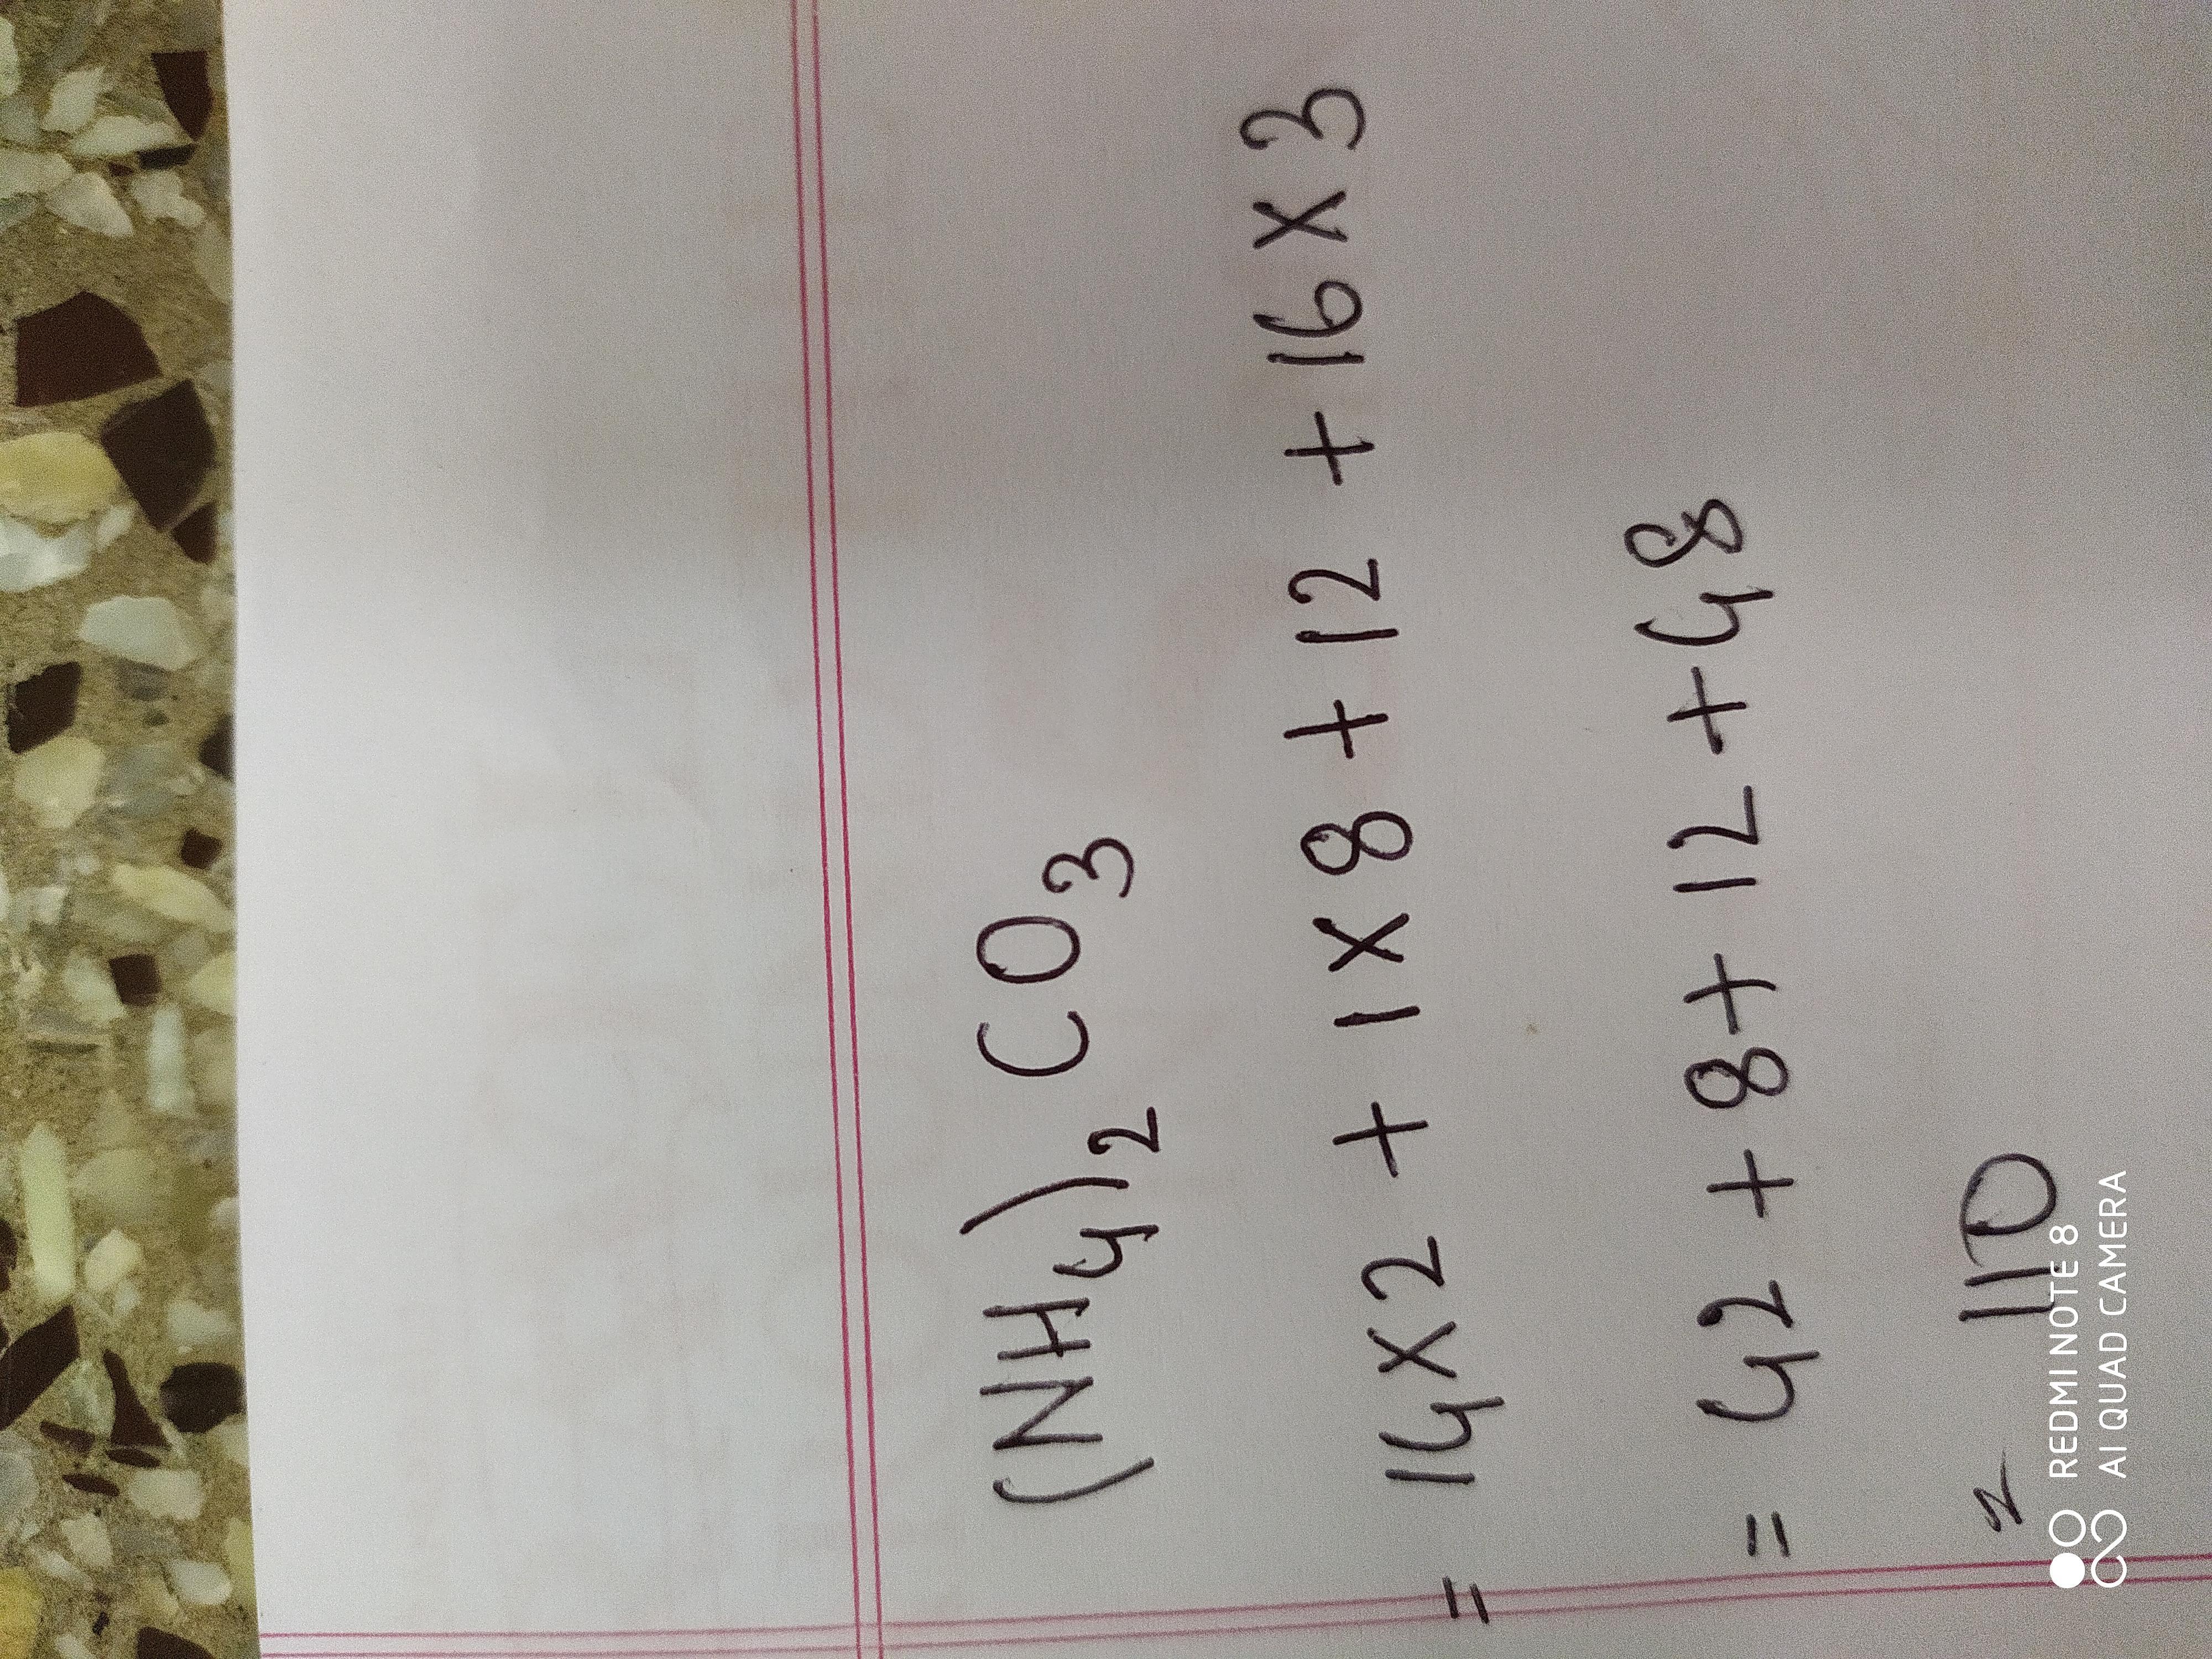 (NH4)2 CO3
= 14×2 + 1×8 + 12 + 16×3
= 42 + 8+ 12 + 48
= 110
REDMI NOTE 8
AI QUAD CAMERA